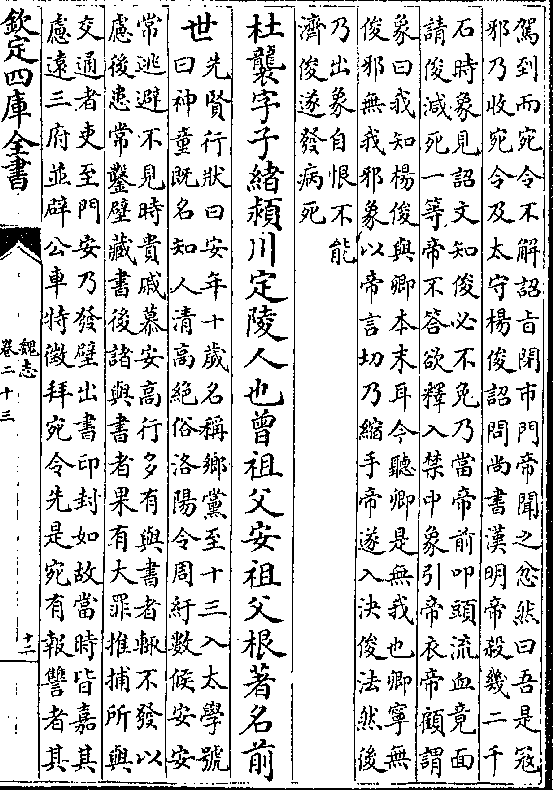 駕到而宛令不解詔旨閉市門帝聞之忿然曰吾是寇
邪乃收宛令及太守楊俊詔問尚書漢明帝殺幾二千
石時象見詔文知俊必不免乃當帝前叩頭流血竟面
請俊減死一等帝不答欲釋入禁中象引帝衣帝顧謂
象曰我知楊俊與卿本末耳今聽卿是無我也卿寧無
俊邪無我邪象以帝言切乃縮手帝遂入決俊法然後
乃出象自恨不能
濟俊遂發病死
杜襲字子緒潁川定陵人也曾祖父安祖父根著名前
世
先賢行狀曰安年十歲名稱鄉黨至十三入太學號
曰神童既名知人清高絕俗洛陽令周紆數候安安
常逃避不見時貴戚慕安高行多有與書者輒不發以
慮後患常鑿壁藏書後諸與書者果有大罪推捕所與
交通者吏至門安乃發壁出書印封如故當時皆嘉其
慮遠三府並辟公車特徵拜宛令先是宛有報讐者其
欽定四庫全書
魏志
卷二十三
十二